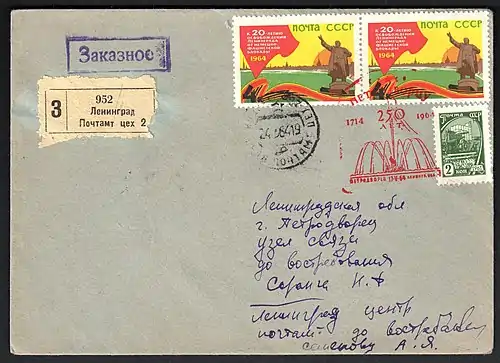 Заказное
З
952
Ленинград
Почтамт цех 2
ПОЧТА СССР
К 20-ЛЕТИЮ
ОСВОБОЖДЕНИЯ
ЛЕНИНГРАДА
ОТ НЕМЕЦКО-
ФАШИСТСКОЙ
БЛОКАДЫ
1964
ПОЧТА СССР
К 20-ЛЕТИЮ
ОСВОБОЖДЕНИЯ
ЛЕНИНГРАДА
ОТ НЕМЕЦКО-
ФАШИСТСКОЙ
БЛОКАДЫ
1964
1714
250
ЛЕТ
1964
ПЕТРОДВОРЕЦ
2
Ленинградская обл
г. Петродворец
узел связи
до востребования
Ленинград центр
почтамт до востребован
А. Я.